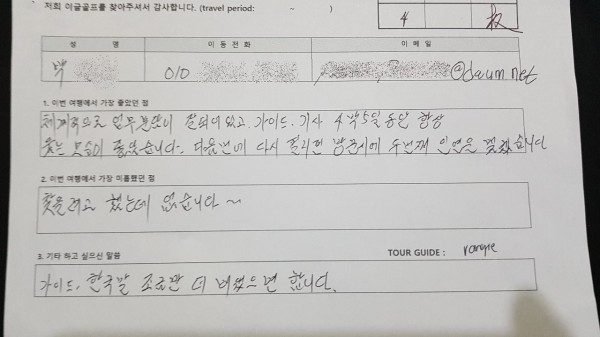 저희 이글골프를 찾아주셔서 감사합니다. (travel period: ~ )
4 박
성 명 이 동 전 화 이 메 일
박 010 @daum.net
1. 이번 여행에서 가장 좋았던 점
체계적으로 업무분담이 잘되어있고, 가이드, 기사 4박5일동안 항상
웃는 모습이 좋았습니다. 다음번에 다시 필리핀 방문시에 두번째 인연을 맺겠습니다
2. 이번 여행에서 가장 미흡했던 점
찾을려고 했는데 없습니다~
3. 기타 하고 싶으신 말씀 TOUR GUIDE :
가이드, 한국말 조금만 더 배웠으면 합니다.